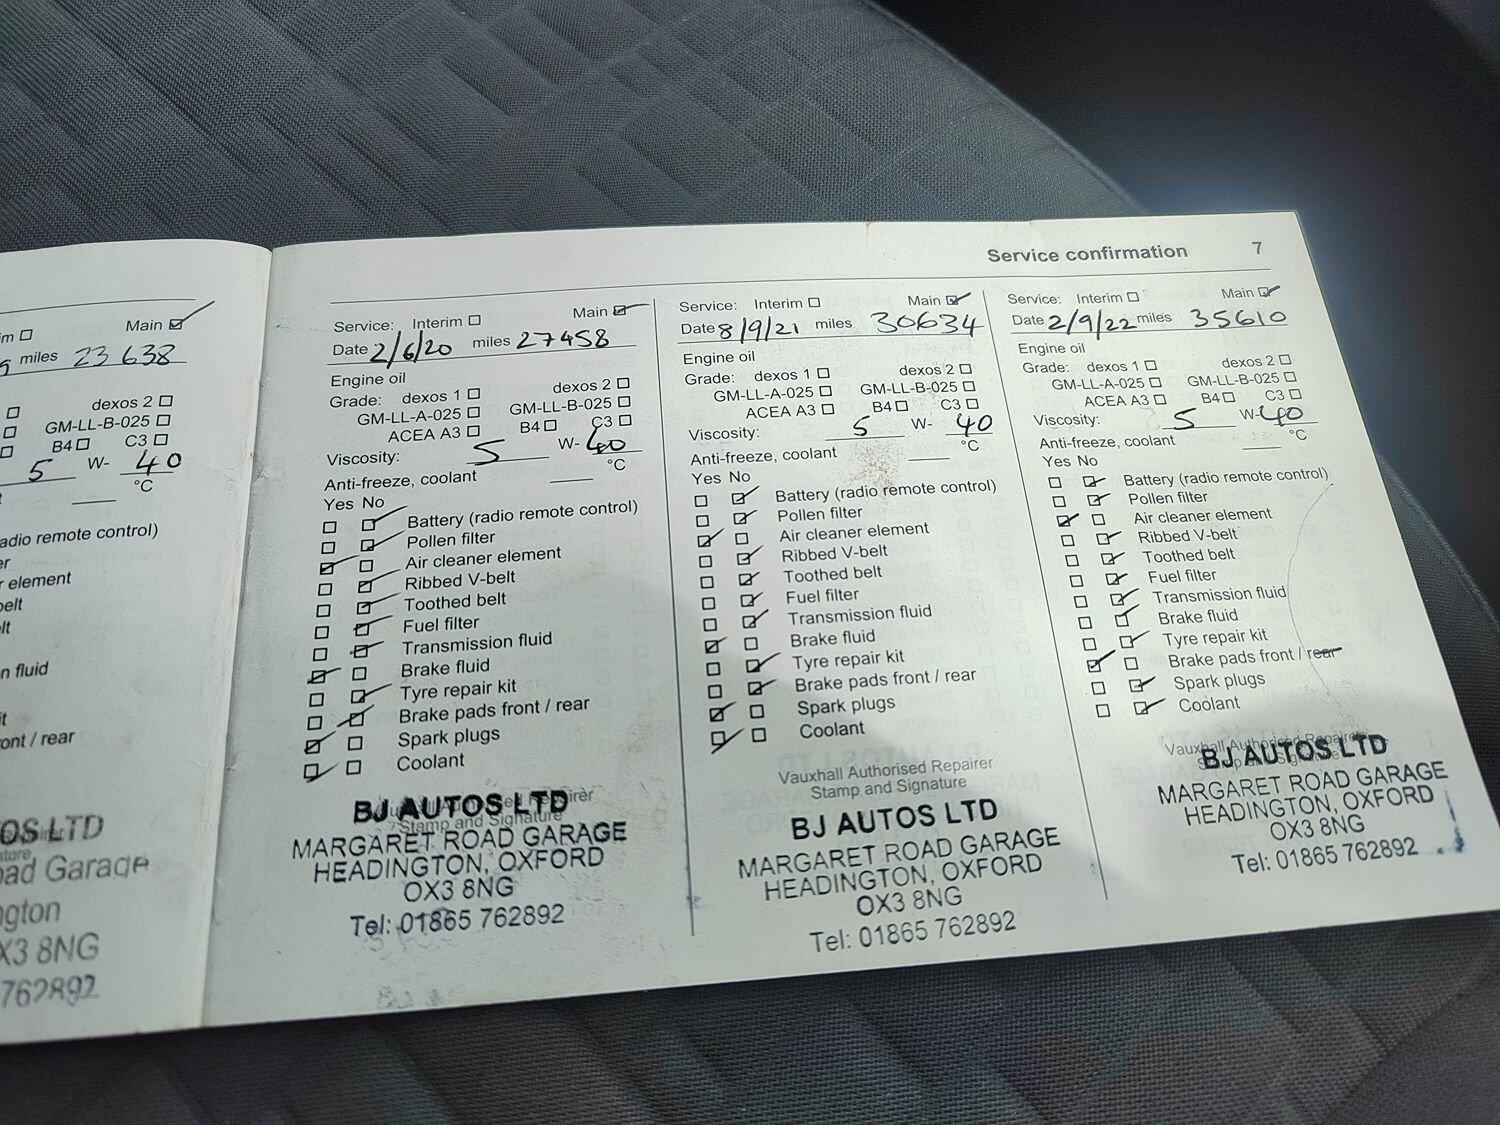 Service confirmation 7
im
Main
miles 23 638
dexos 2
GM-LL-B-025
B4 C3
5 W- 40
°C
adio remote control)
er
r element
belt
lt
n fluid
it
ont / rear
OS LTD
oad Garage
ngton
X3 8NG
762892
Service: Interim Main
Date 2/6/20 miles 27458
Engine oil
Grade: dexos 1 dexos 2
GM-LL-A-025 GM-LL-B-025
ACEA A3 B4 C3
Viscosity: 5 W- 40
Anti-freeze, coolant °C
Yes No
Battery (radio remote control)
Pollen filter
Air cleaner element
Ribbed V-belt
Toothed belt
Fuel filter
Transmission fluid
Brake fluid
Tyre repair kit
Brake pads front / rear
Spark plugs
Coolant
Stamp and Signature
BJ AUTOS LTD
MARGARET ROAD GARAGE
HEADINGTON, OXFORD
OX3 8NG
Tel: 01865 762892
Service: Interim Main
Date 8/9/21 miles 30634
Engine oil
Grade: dexos 1 dexos 2
GM-LL-A-025 GM-LL-B-025
ACEA A3 B4 C3
Viscosity: 5 W- 40
Anti-freeze, coolant °C
Yes No
Battery (radio remote control)
Pollen filter
Air cleaner element
Ribbed V-belt
Toothed belt
Fuel filter
Transmission fluid
Brake fluid
Tyre repair kit
Brake pads front / rear
Spark plugs
Coolant
Vauxhall Authorised Repairer
Stamp and Signature
BJ AUTOS LTD
MARGARET ROAD GARAGE
HEADINGTON, OXFORD
OX3 8NG
Tel: 01865 762892
Service: Interim Main
Date 2/9/22 miles 35610
Engine oil
Grade: dexos 1 dexos 2
GM-LL-A-025 GM-LL-B-025
ACEA A3 B4 C3
Viscosity: 5 W- 40
Anti-freeze, coolant °C
Yes No
Battery (radio remote control)
Pollen filter
Air cleaner element
Ribbed V-belt
Toothed belt
Fuel filter
Transmission fluid
Brake fluid
Tyre repair kit
Brake pads front / rear
Spark plugs
Coolant
Vauxhall Authorised Repairer
BJ AUTOS LTD
MARGARET ROAD GARAGE
HEADINGTON, OXFORD
OX3 8NG
Tel: 01865 762892